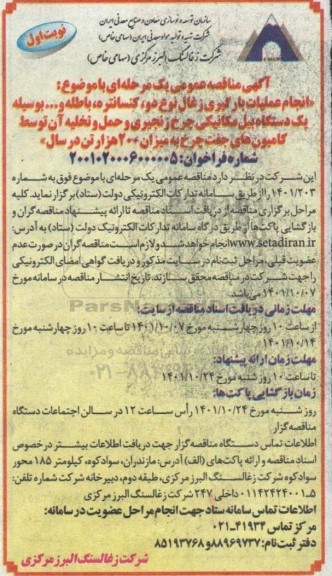 سازمان توسعه و نوسازی معادن و صنایع معدنی ایران
شرکت تهیه و تولید مواد معدنی ایران (سهامی خاص)
شرکت زغالسنگ البرز مرکزی (سهامی خاص)
نوبت اول
آگهی مناقصه عمومی یک مرحله‌ای با موضوع:
«انجام عملیات بارگیری زغال نوع دو، کنسانتره، باطله و... بوسیله
یک دستگاه بیل مکانیکی چرخ زنجیری و حمل و تخلیه آن توسط
کامیون‌های جفت چرخ به میزان ۲۰۰ هزار تن در سال»
شماره فراخوان: ۲۰۰۱۰۲۰۰۰۶۰۰۰۰۰۵
این شرکت در نظر دارد مناقصه عمومی یک مرحله‌ای با موضوع فوق به شماره
۱۴۰۱/۲۰۳ را از طریق سامانه تدارکات الکترونیکی دولت (ستاد) برگزار نماید. کلیه
مراحل برگزاری مناقصه از دریافت اسناد مناقصه تا ارائه پیشنهاد مناقصه‌گران و
بازگشایی پاکت‌ها از طریق درگاه سامانه تدارکات الکترونیک دولت (ستاد) به آدرس:
www.setadiran.ir انجام خواهد شد و لازم است مناقصه‌گران در صورت عدم
عضویت قبلی، مراحل ثبت‌نام در سایت مذکور و دریافت گواهی امضای الکترونیکی
را جهت شرکت در مناقصه محقق سازند. تاریخ انتشار مناقصه در سامانه مورخ
۱۴۰۱/۱۰/۰۷ می‌باشد.
مهلت زمانی دریافت اسناد مناقصه از سایت:
از ساعت ۱۰ روز چهارشنبه مورخ ۱۴۰۱/۱۰/۰۷ تا ساعت ۱۰ روز چهارشنبه مورخ
۱۴۰۱/۱۰/۱۴
مهلت زمان ارائه پیشنهاد:
تا ساعت ۱۰ روز شنبه مورخ ۱۴۰۱/۱۰/۲۴
زمان بازگشایی پاکت‌ها:
روز شنبه مورخ ۱۴۰۱/۱۰/۲۴ رأس ساعت ۱۲ در سالن اجتماعات دستگاه
مناقصه‌گزار
اطلاعات تماس دستگاه مناقصه‌گزار جهت دریافت اطلاعات بیشتر در خصوص
اسناد مناقصه و ارائه پاکت‌های (الف) آدرس: مازندران، سوادکوه، کیلومتر ۱۸۵ محور
سوادکوه شرکت زغالسنگ البرز مرکزی، طبقه دوم، دبیرخانه شرکت شماره تلفن:
۵-۰۱۱۴۲۴۲۴۰۰۱ داخلی ۲۴۷ شرکت زغالسنگ البرز مرکزی
اطلاعات تماس سامانه ستاد جهت انجام مراحل عضویت در سامانه:
مرکز تماس ۴۱۹۳۴-۰۲۱
دفتر ثبت‌نام: ۸۸۹۶۹۷۳۷ و ۸۵۱۹۳۷۶۸
شرکت زغالسنگ البرز مرکزی